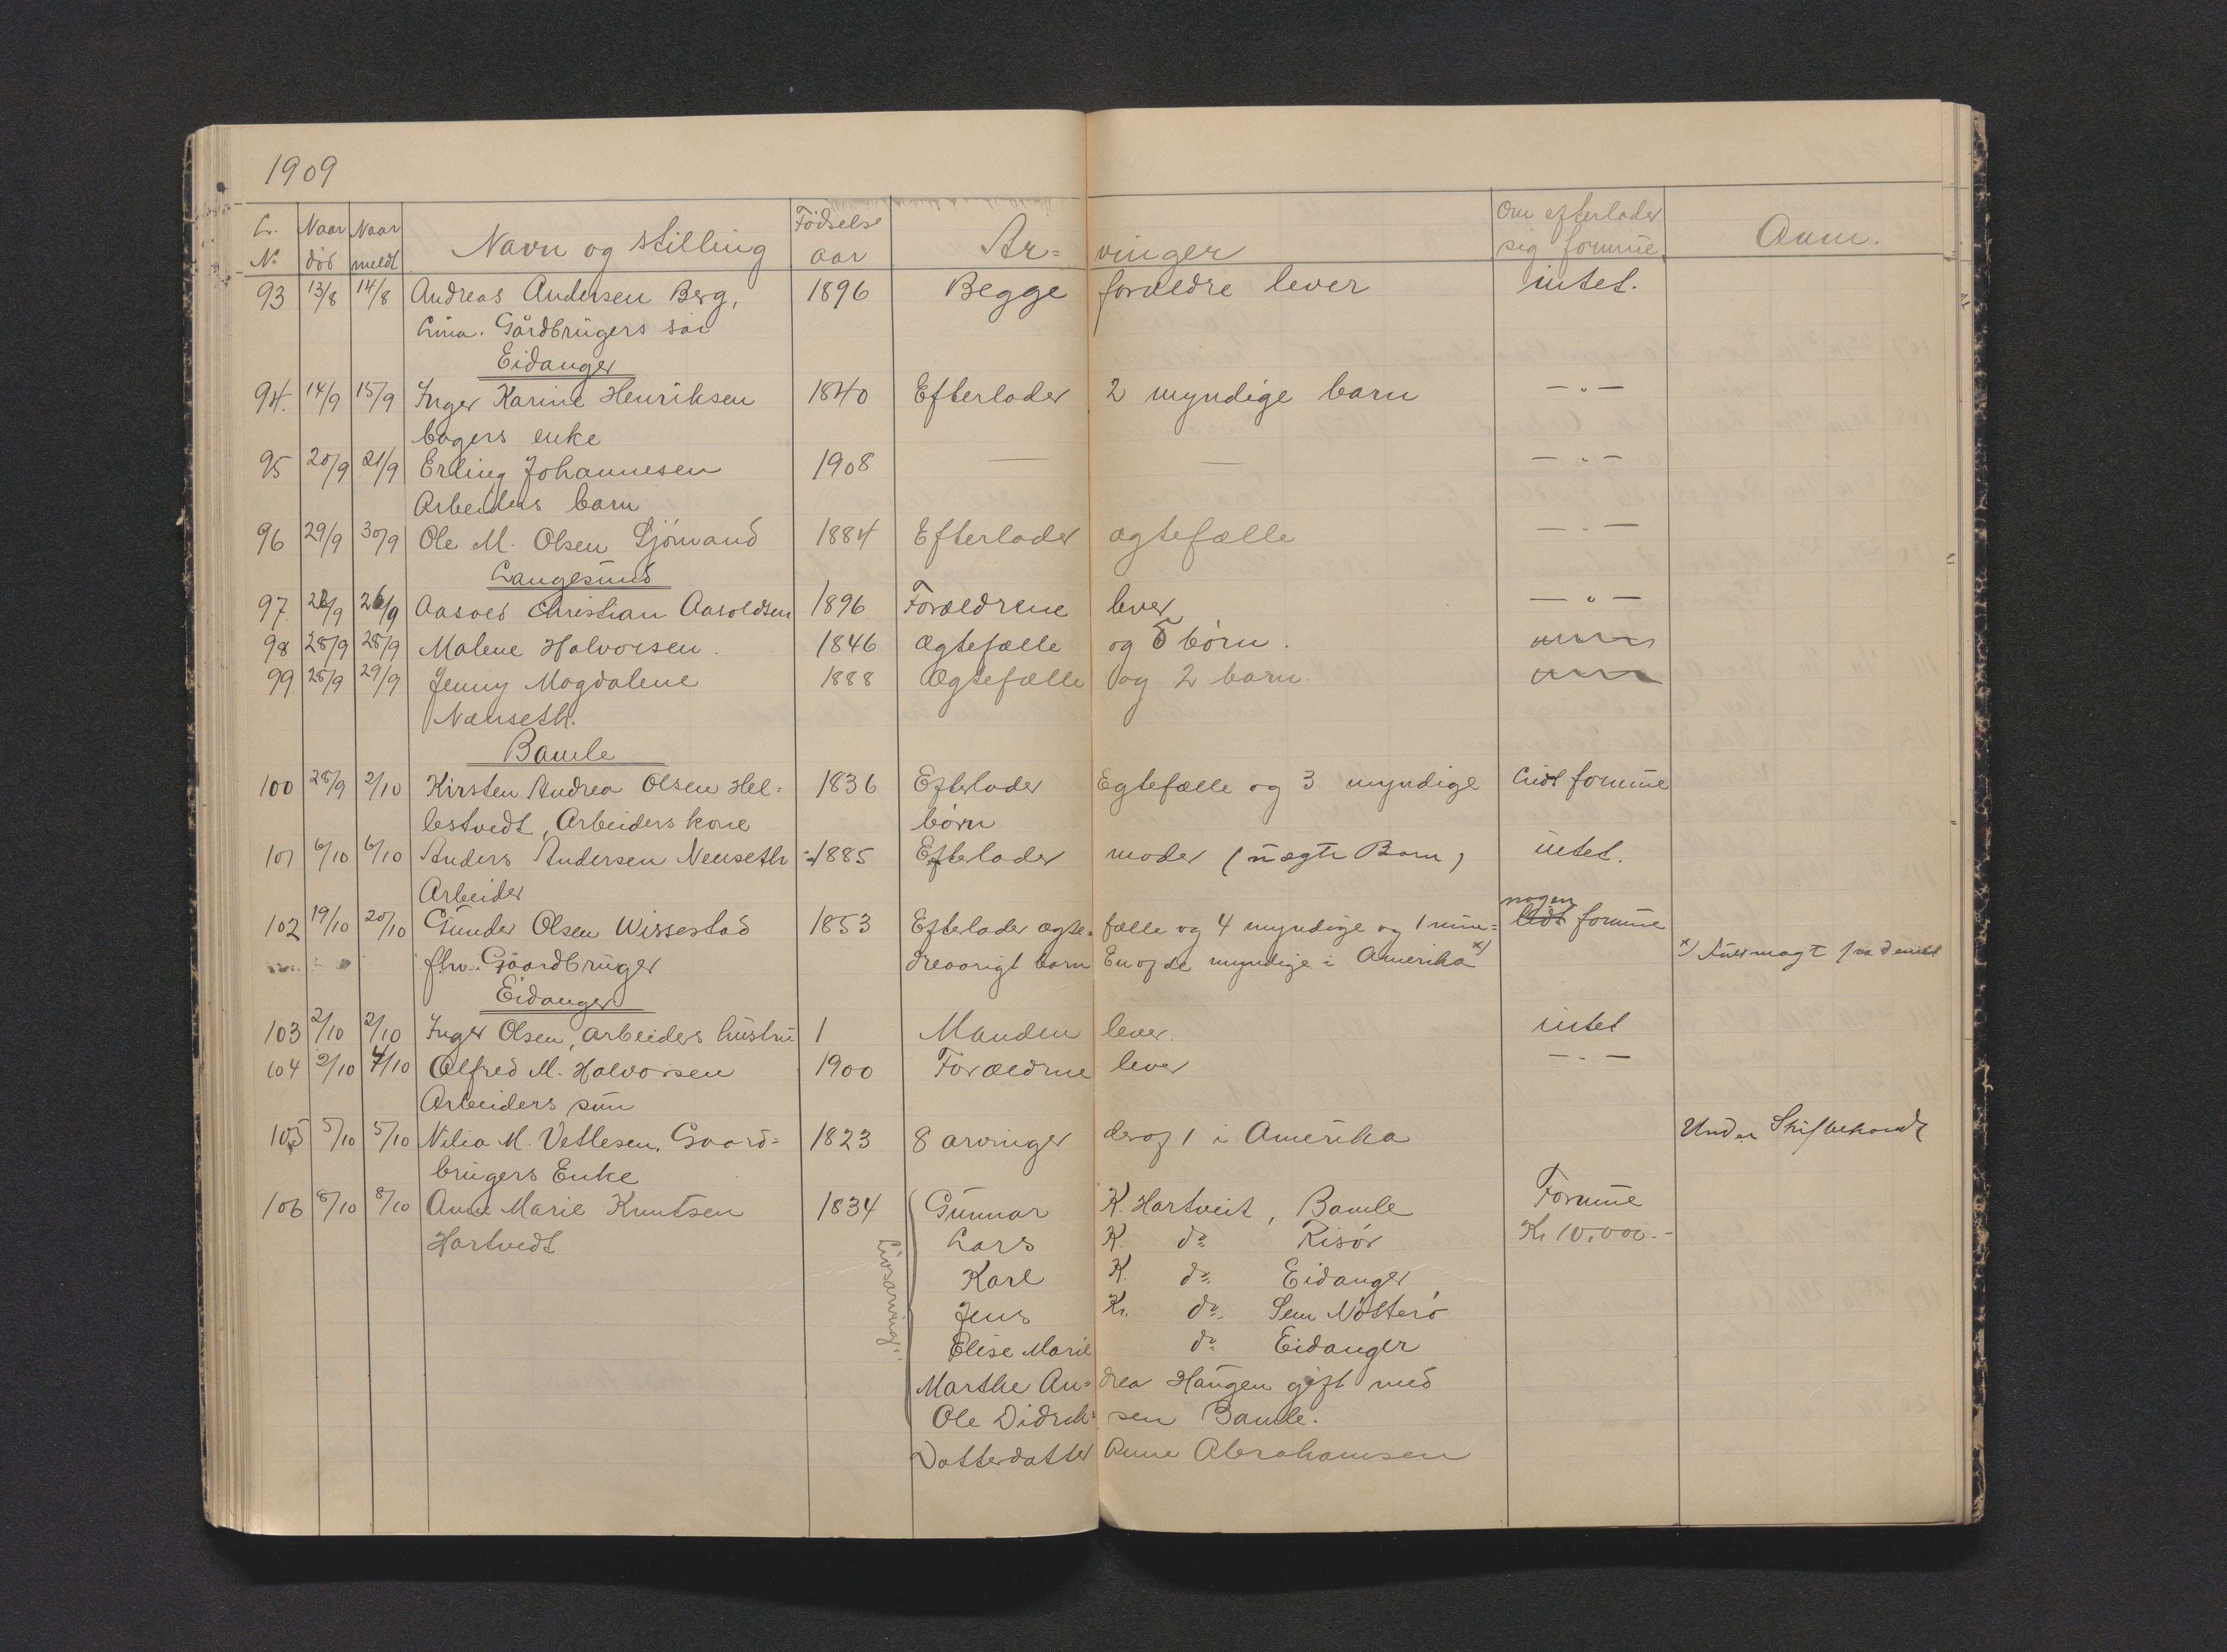 1909
L. Naar Naar Navn og stilling Födsels Ar= vinger Om efterlader Anm.
No död meldt aar sig formue
93 13/8 14/8 Andreas Andersen Berg, 1896 Begge forældre lever intet.
Gårdbrugers
Eidanger
94. 14/9 15/9 Inger Karine Henriksen 1840 Efterlader 2 myndige barn — " —
bagers enke
95 20/9 21/9 Erling Johannesen 1908 — — — " —
Arbeiders barn
96 29/9 30/9 Ole M. Olsen Sjömand 1884 Efterlader ægtefælle — " —
Langesund
97. 26/9 Aasold Christian Aasoldsen 1896 Forældrene lever — " —
98 28/9 28/9 Malene Halvorsen. 1846 Ægtefælle og börn.
99. 28/9 29/9 Jenny Magdalene 1888 Ægtefælle og 2 barn.
Nænseth.
Bamle
100 28/9 2/10 Kirsten Andrea Olsen Hel= 1836 Efterlader Egtefælle og 3 myndige Lidt formue
lestvedt, Arbeiders kone börn
101 6/10 6/10 Anders Andersen Nenseth 1885 Efterlader moder (uægte Barn) intet.
Arbeider
nogen
102 19/10 20/10 Gunder Olsen Wissestad 1853 Efterlader ægte= fælle og 4 myndige og 1 min= lidt formue
fhv. Gaardbruger dreaarigt barn En af de myndige i Amerika x) x) fra
Eidanger
103 2/10 2/10 Inger Olsen, arbeiders hustru 1 Manden lever. intet
104 2/10 4/10 Alfred M. Halvorsen 1900 Forældrne lever — " —
Arbeiders sön
105 5/10 5/10 Nilia M. Vetlesen, Gaard= 1823 8 arvinger deraf 1 i Amerika Under Skiftebehandl
brugers Enke
106 8/10 8/10 Anne Marie Knutsen 1834 Gunnar K. Hartveit, Bamle Formue
Hartvedt Lars K. do Risör Kr 10.000.-
Livsarving:
Karl K. do Eidanger
Jens Kr. do Sem Nötterö
Elise Marie do Eidanger
Marthe An= drea Haugen gift med
Ole Didrik= sen Bamle.
Datterdatter Anne Abrahamsen